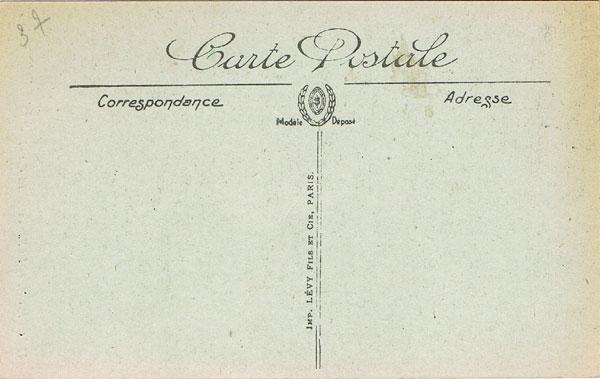 37
Carte Postale
Correspondance
Adresse
Modèle Déposé
IMP. LÉVY FILS ET CIE, PARIS.